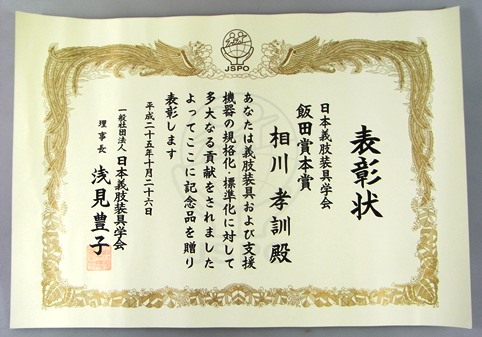 JSPO
表彰状
日本義肢装具学会
飯田賞本賞
相川孝訓殿
あなたは義肢装具および支援
機器の規格化・標準化に対して
多大なる貢献をされました
よってここに記念品を贈り
表彰します
平成二十五年十月二十六日
一般社団法人 日本義肢装具学会
理事長 浅見豊子